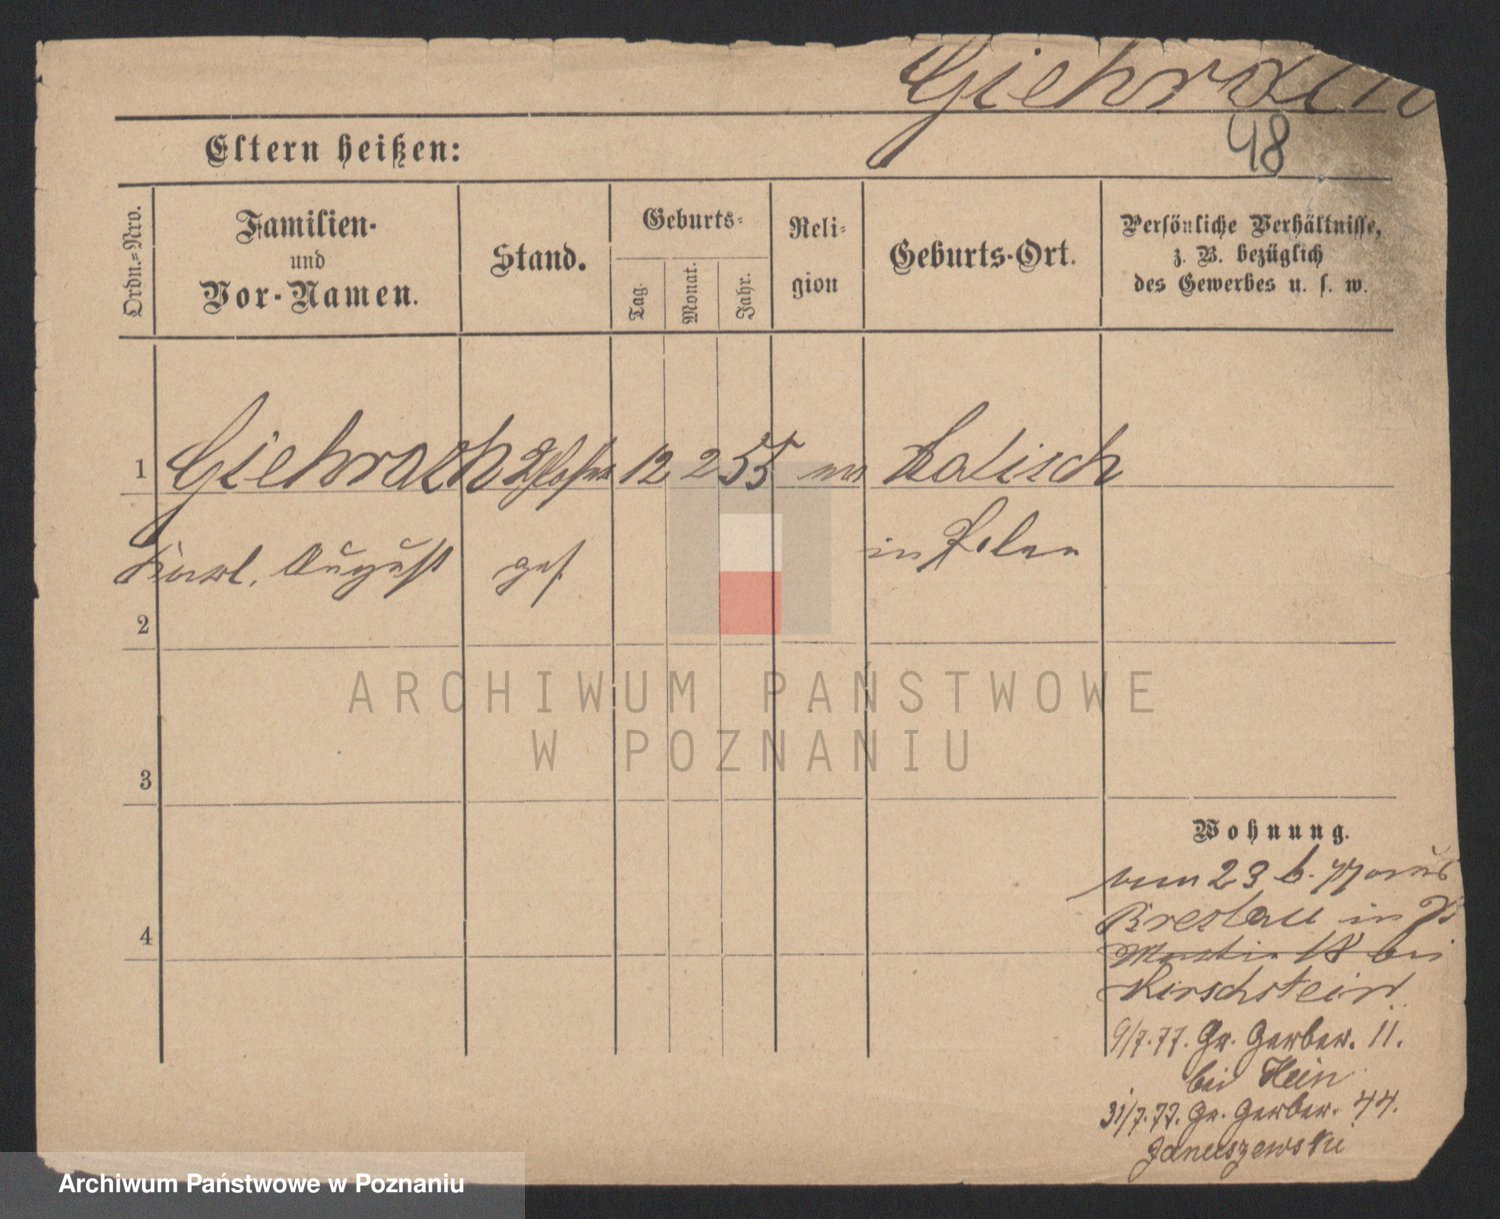 Giehrach
48
Eltern heißen:
Ordn.=Nro.
Familien-
und
Vor-Namen.
Stand.
Geburts-
Tag.
Monat.
Jahr.
Reli-
gion
Geburts-Ort.
Persönliche Verhältnisse,
z. B. bezüglich
des Gewerbes u. s. w.
1 Giehrach 12 2 55 Kalisch
Karl. August ges. in Polen
2
3
4
ARCHIWUM PAŃSTWOWE
W POZNANIU
Wohnung.
vom 23 6. 77 aus
Breslau in
Martin 18 bei
Kirschstein
9/7.77. Gr. Gerber. 11.
bei Hein
31/7.77. Gr. Gerber. 44.
Januszewski
Archiwum Państwowe w Poznaniu